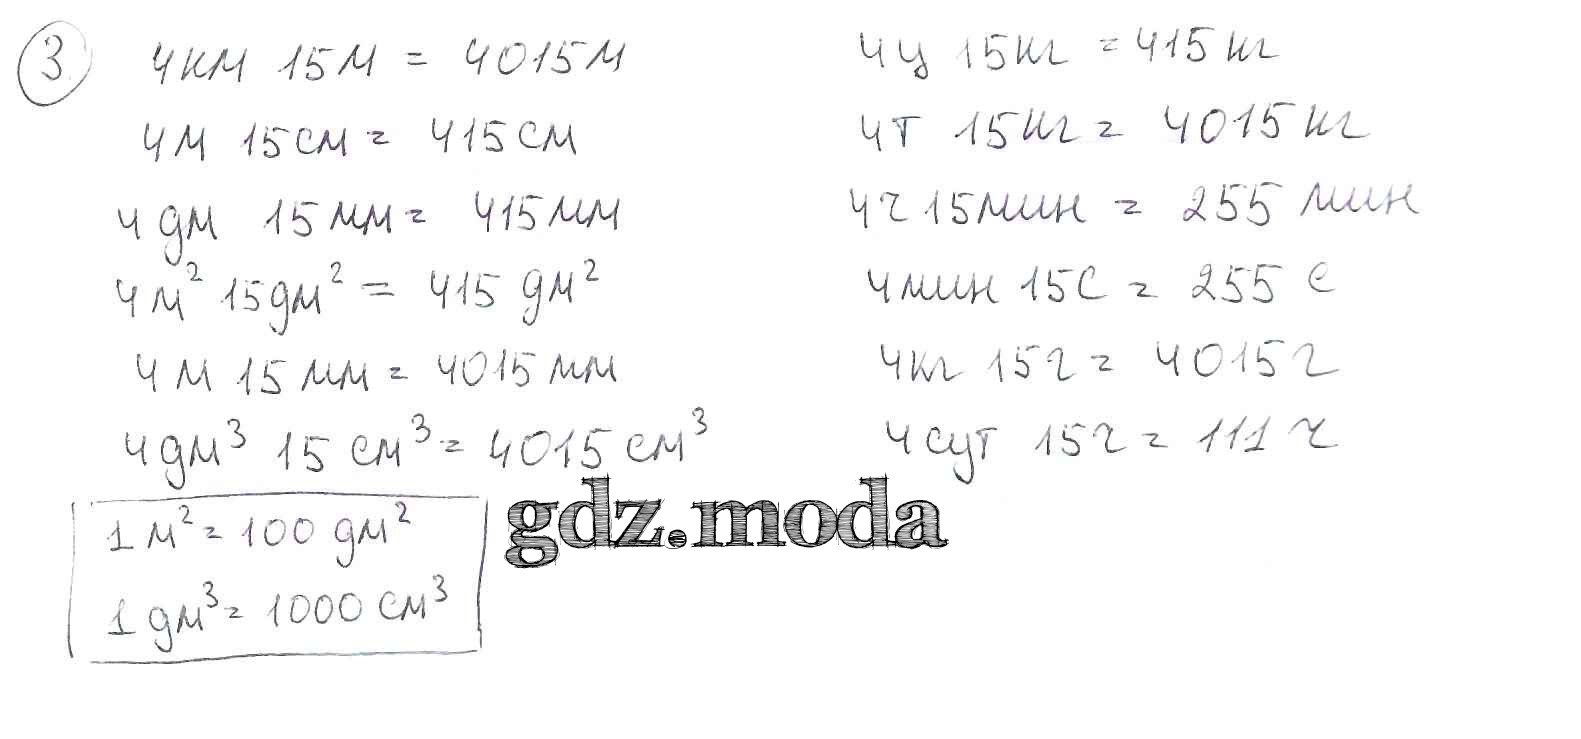 3
4км 15м = 4015м
4м 15см = 415см
4 дм 15мм = 415мм
4м² 15дм² = 415 дм²
4м 15мм = 4015мм
4дм³ 15 см³ = 4015 см³
1 м² = 100 дм²
1 дм³ = 1000 см³
4ц 15кг = 415кг
4т 15кг = 4015кг
4ч 15мин = 255 мин
4мин 15с = 255 с
4кг 15г = 4015г
4сут 15ч = 111 ч
gdz.moda